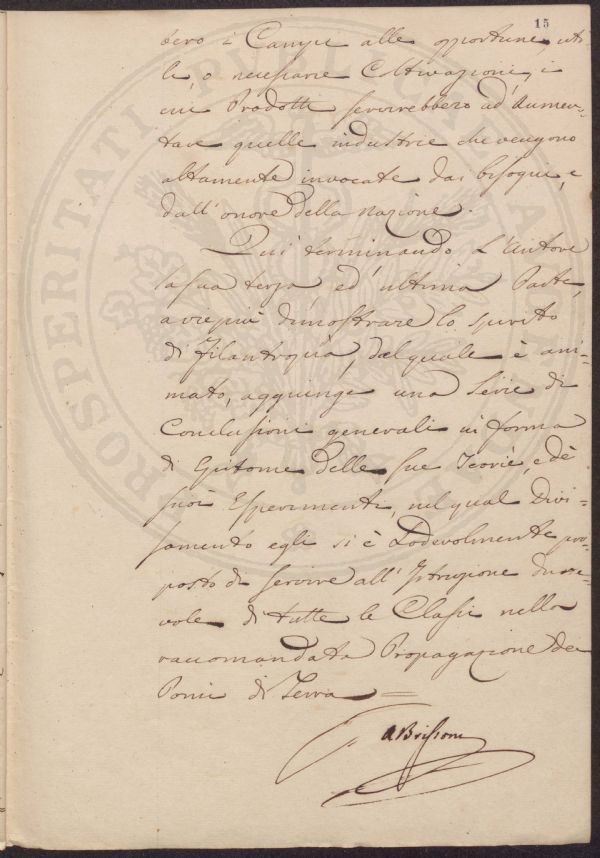 15
bero i Campi alle opportune, uti-
li, o necessarie Coltivazioni, i
cui Prodotti servirebbero ad Aumen-
tare quelle industrie che vengono
altamente invocate dai bisogni, e
dall'onore della Nazione.
Qui terminando L'Autore
la sua terza, ed ultima Parte,
a vie più dimostrare lo spirito
di filantropia, dal quale è ani-
mato, aggiunge una Serie di
Conclusioni generali in forma
di Epitome delle sue Teorie, e de'
suoi Esperimenti, nel qual Divi-
samento egli si è Lodevolmente pro-
posto di servire all'Istruzione
vole di tutte le Classi nella
raccomandata Propagazione dei
Pomi di Terra =
PROSPERITATI PUBLICAE